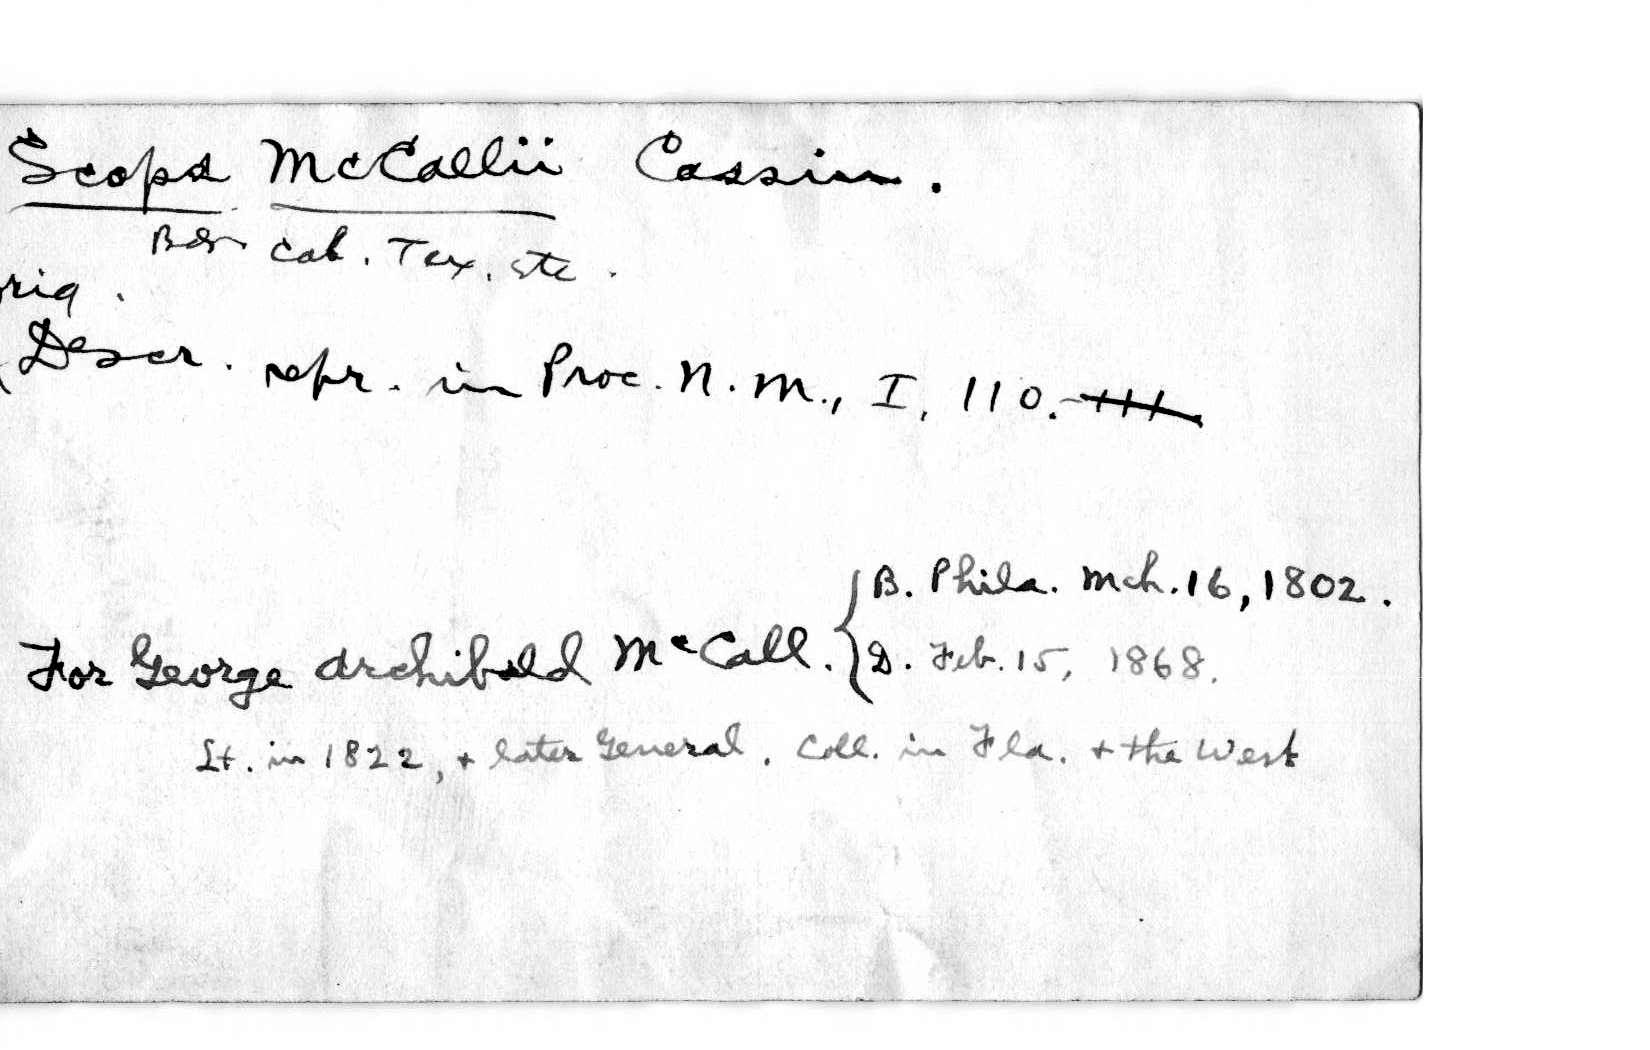 Scops McCallii Cassin.
Cal. Tex. etc.
rig.
Descr. repr. in Proc. N. M., I, 110.
For George Archibald McCall. { B. Phila. Mch. 16, 1802.
D. Feb. 15, 1868.
Lt. in 1822, + later General. Coll. in Fla. + the West